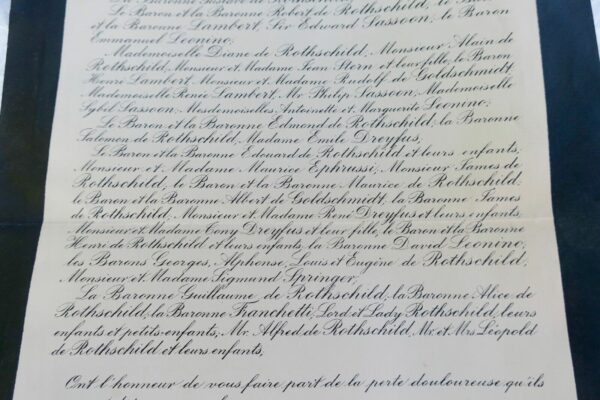 Le Baron et la Baronne Robert de Rothschild, le Baron
et la Baronne Lambert, Sir Edward Sassoon, le Baron
Emmanuel Leonino;
Mademoiselle Diane de Rothschild, Monsieur Alain de
Rothschild, Monsieur et Madame Jean Stern et leur fille, le Baron
Henri Lambert, Monsieur et Madame Rudolf de Goldschmidt,
Mademoiselle Renée Lambert, Mr. Philip Sassoon, Mademoiselle
Sybil Sassoon, Mesdemoiselles Antoinette et Marguerite Leonino;
Le Baron et la Baronne Edmond de Rothschild, la Baronne
Salomon de Rothschild, Madame Emile Dreyfus,
Le Baron et la Baronne Edouard de Rothschild et leurs enfants,
Monsieur et Madame Maurice Ephrussi, Monsieur James de
Rothschild, le Baron et la Baronne Maurice de Rothschild,
le Baron et la Baronne Albert de Goldschmidt, la Baronne James
de Rothschild, Monsieur et Madame René Dreyfus et leurs enfants,
Monsieur et Madame Tony Dreyfus et leur fille, le Baron et la Baronne
Henri de Rothschild et leurs enfants, la Baronne David Leonino,
les Barons Georges, Alphonse, Louis et Eugène de Rothschild,
Monsieur et Madame Sigmund Springer,
La Baronne Guillaume de Rothschild, la Baronne Alice de
Rothschild, la Baronne Franchetti, Lord et Lady Rothschild, leurs
enfants et petits-enfants, Mr. Alfred de Rothschild, Mr. et Mrs Léopold
de Rothschild et leurs enfants,
Ont l'honneur de vous faire part de la perte douloureuse qu'ils